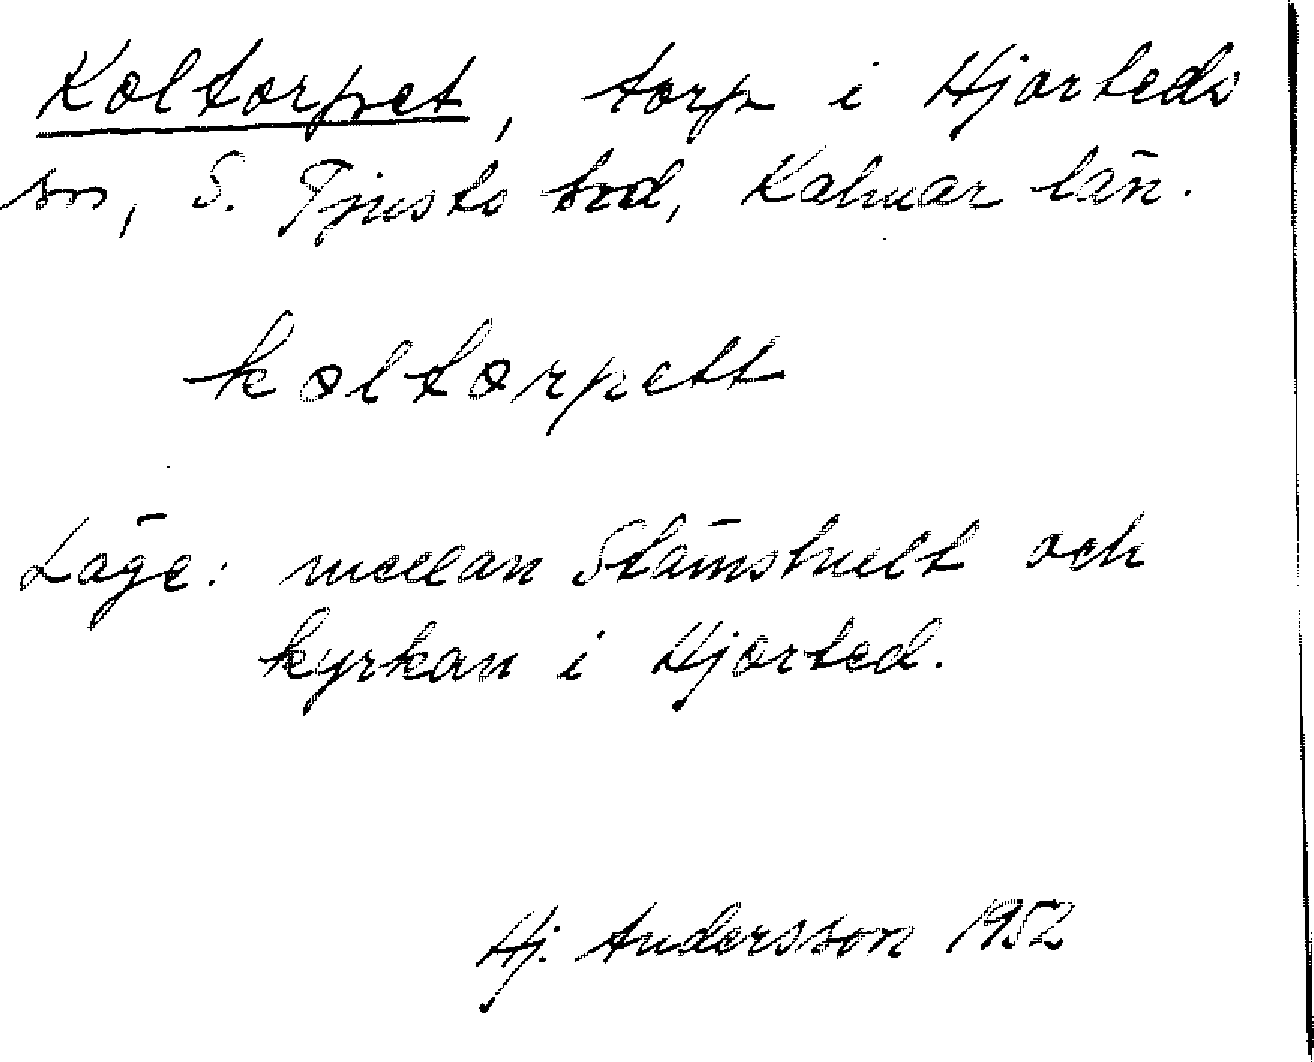 Koltorpet, torp i Hjorteds
sn, S. Tjusts hd, Kalmar län.
koltorpett
Läge: mellan Stämshult och
kyrkan i Hjorted.
Hj. Andersson 1952